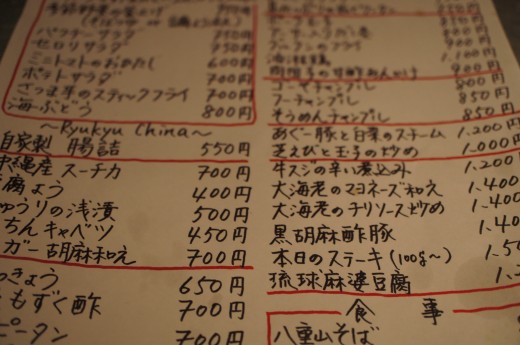 パクチーサラダ 750円
セロリサラダ 750円
ミニトマトのおひたし 600円
ポテトサラダ 700円
さつま芋のスティックフライ 700円
海ぶどう 800円
〜Ryukyu China〜
自家製 腸詰 550円
沖縄産 スーチカ 700円
腐よう 400円
ゅうりの浅漬 500円
ちんキャベツ 450円
ガー胡麻和え 700円
っきょう 650円
もずく酢 700円
ピータン 700円
900
ゴーヤチャンプル 800円
フーチャンプル 850円
そうめんチャンプル 850円
あぐー豚と白菜のスチーム 1.100
芝えびと玉子の炒め 1.000円
牛スジの辛い煮込み 1.200
大海老のマヨネーズ和え 1.400
大海老のチリソース炒め 1.400
黒胡麻酢豚 1.40
本日のステーキ(100g〜) 1.50
琉球麻婆豆腐
食事
八重山そば